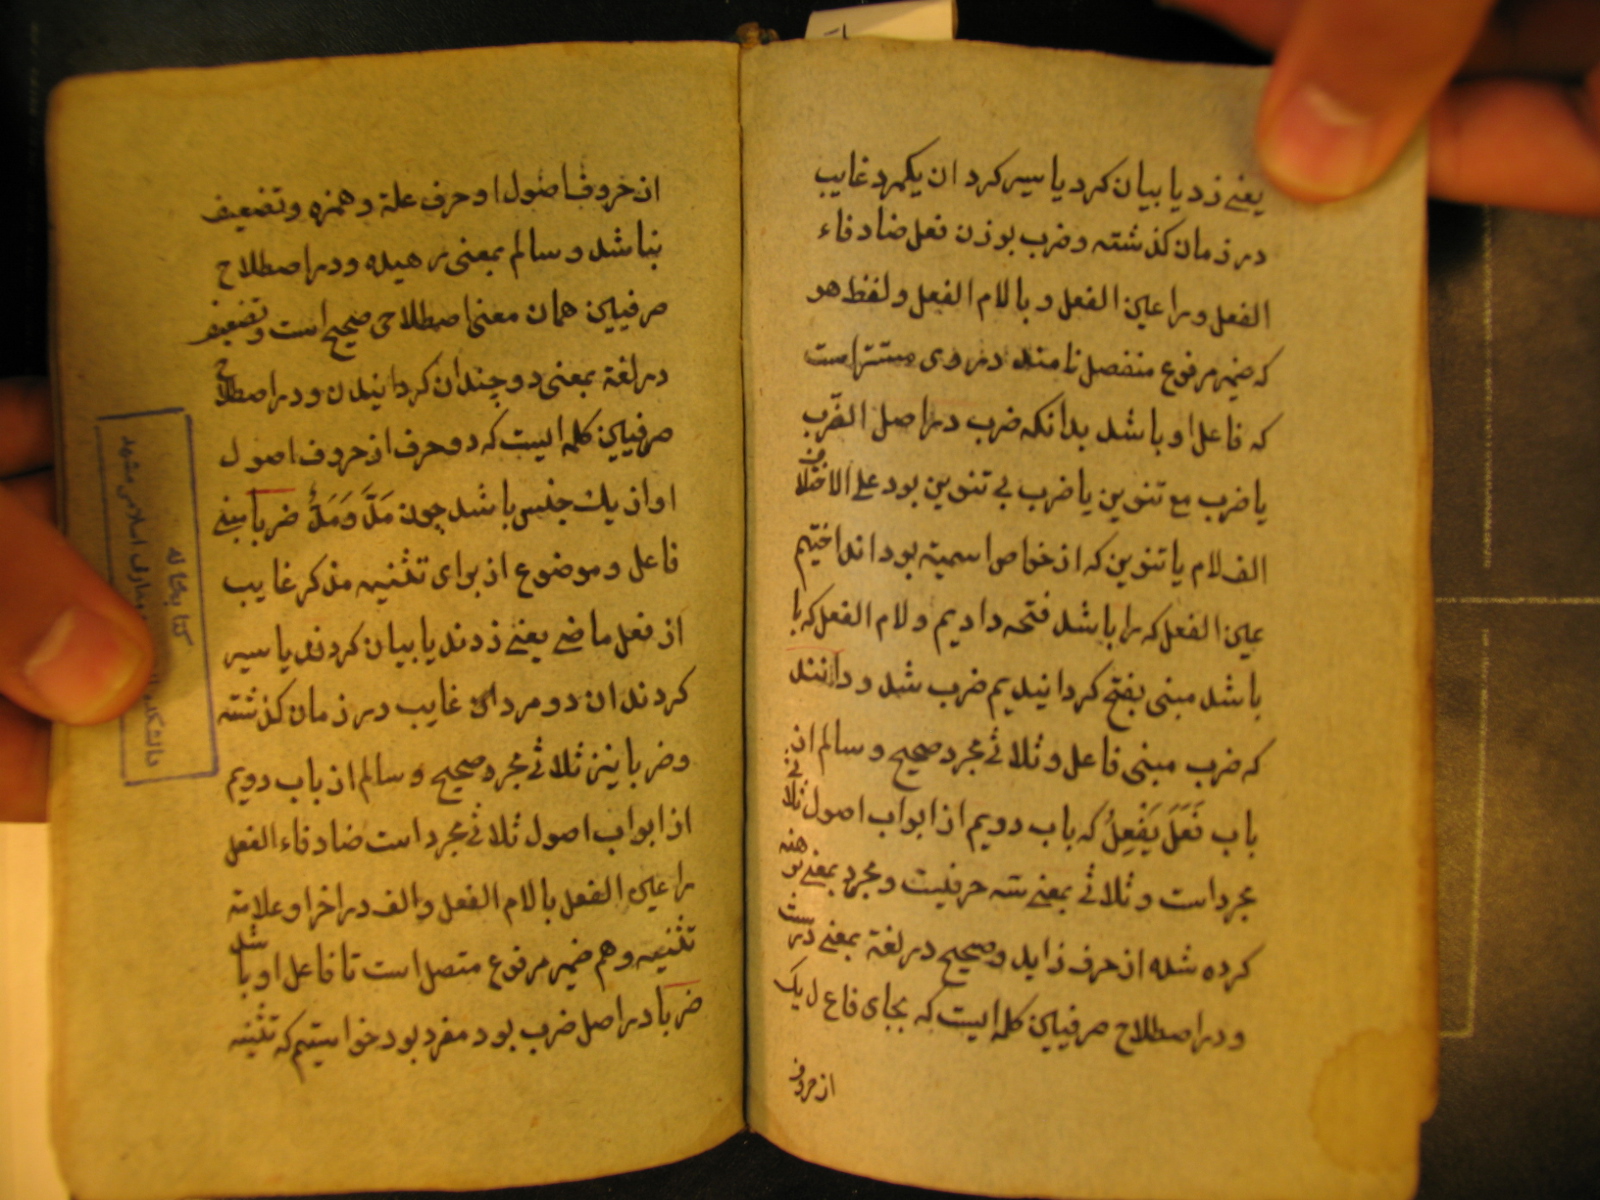 یعنی زد یا بیان کرد یا سیر کرد ان یکمرد غایب
در زمان کذشته و ضرب بوزن فعل ضاد فاء
الفعل و را عین الفعل و با لام الفعل و لفظ هو
که ضمیر مرفوع منفصل نامند در وی مستتر است
که فاعل او باشد بدانکه ضرب در اصل الضرب
یا ضرب مع تنوین یا ضرب بی تنوین بود علی الاختلاف
الف لام یا تنوین که از خواص اسمیته بود انداختیم
عین الفعل که را باشد فتحه دادیم و لام الفعل که با
باشد مبنی بفتح کردانیدیم ضرب شد و دانند
که ضرب مبنی فاعل و ثلاثی مجرد صحیح و سالم از
باب فَعَلَ یَفْعِلُ که باب دویم از ابواب اصول ثلاثی
مجرد است و ثلاثی بمعنی سه حرفیست و مجرد بمعنی برهنه
کرده شده از حرف زاید و صحیح در لغة بمعنی درست
و در اصطلاح صرفیین کلمه ایست که بجای فاع ل یک
از حروف
از حروف اصول او حرف علة و همزه و تضعیف
نباشد و سالم بمعنی رهیده و در اصطلاح
صرفیین همان معنی اصطلاحی صحیح است و تضعیف
در لغة بمعنی دو چندان کردانیدن و در اصطلاح
صرفیین کلمه ایست که دو حرف از حروف اصول
او از یك جنس باشد چون مَدَّ وَ مَدٌّ ضربا مبنی
فاعل و موضوع از برای تثنیه مذکر غایب
از فعل ماضی یعنی زدند یا بیان کردند یا سیر
کردند ان دو مردان غایب در زمان کذشته
و ضربا نیز ثلاثی مجرد صحیح و سالم از باب دویم
از ابواب اصول ثلاثی مجرد است ضاد فاء الفعل
را عین الفعل با لام الفعل و الف در اخر او علامة
تثنیه و هم ضمیر مرفوع متصل است تا فاعل او باشد
ضربا در اصل ضرب بود مفرد بود خواستیم که تثنیه
کتابخانه
دانشکده معارف اسلامی مشهد